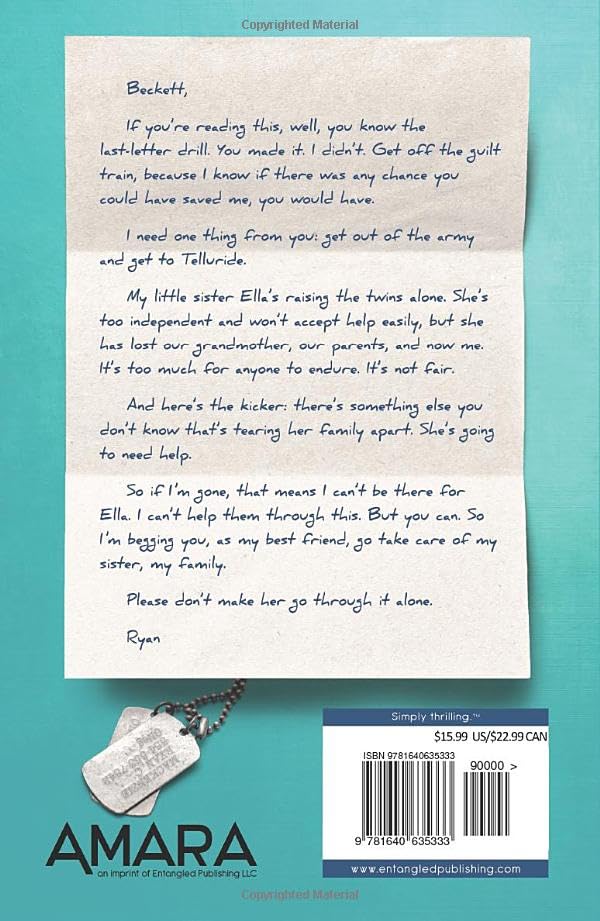 Copyrighted Material
Beckett,
If you're reading this, well, you know the
last-letter drill. You made it. I didn't. Get off the guilt
train, because I know if there was any chance you
could have saved me, you would have.
I need one thing from you: get out of the army
and get to Telluride.
My little sister Ella's raising the twins alone. She's
too independent and won't accept help easily, but she
has lost our grandmother, our parents, and now me.
It's too much for anyone to endure. It's not fair.
And here's the kicker: there's something else you
don't know that's tearing her family apart. She's going
to need help.
So if I'm gone, that means I can't be there for
Ella. I can't help them through this. But you can. So
I'm begging you, as my best friend, go take care of my
sister, my family.
Please don't make her go through it alone.
Ryan
Simply thrilling.™
$15.99 US/$22.99 CAN
ISBN 9781640635333
90000 >
9 781640 635333
www.entangledpublishing.com
AMARA
an imprint of Entangled Publishing LLC
Copyrighted Material